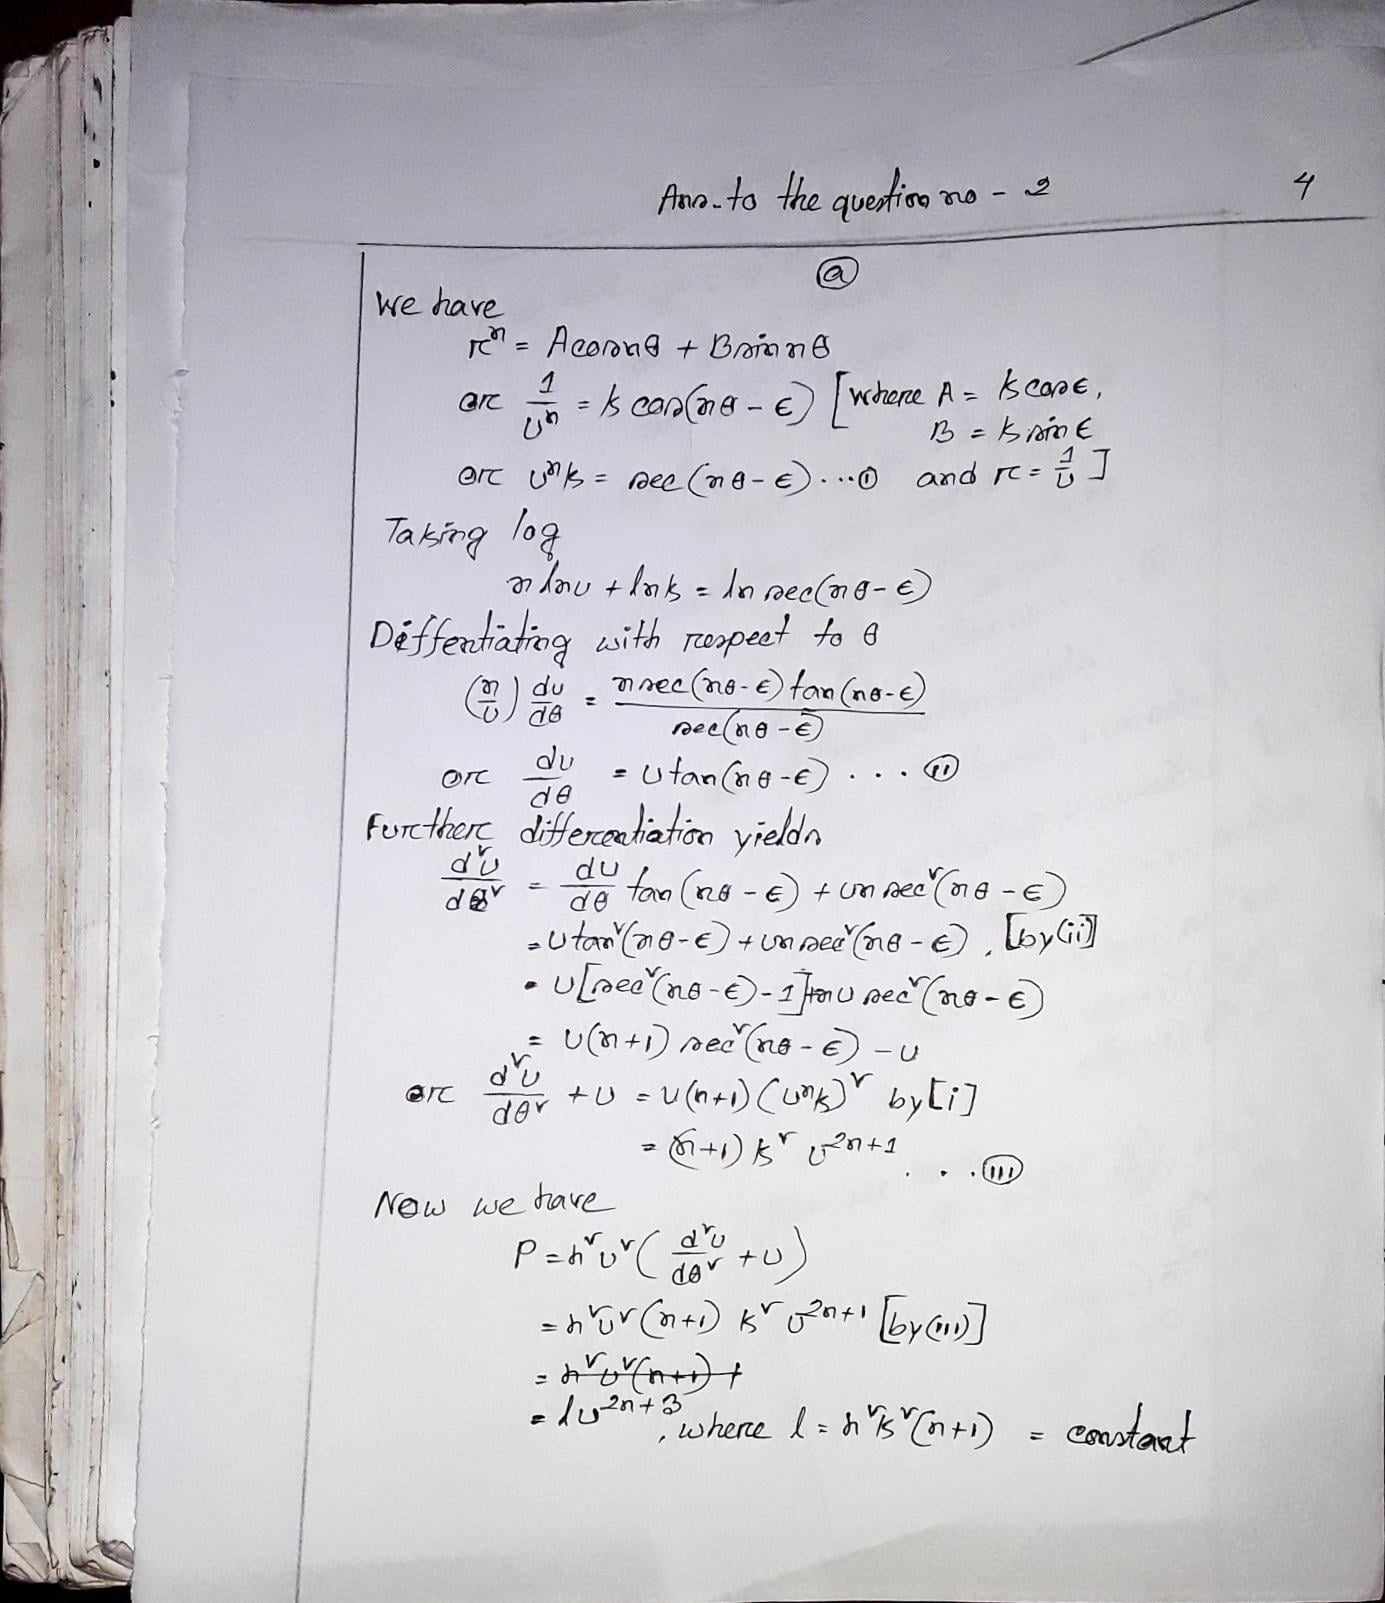 Ans. to the question no - 2
4
ⓐ
We have
rⁿ = A cos nθ + B sin nθ
or 1/uⁿ = k cos(nθ - ϵ) [where A = k cos ϵ,
B = k sin ϵ
or uⁿk = sec(nθ - ϵ) ... ⓘ and r = 1/u ]
Taking log
n ln u + ln k = ln sec(nθ - ϵ)
Diffentiating with respect to θ
(n/u) du/dθ = n sec(nθ - ϵ) tan(nθ - ϵ) / sec(nθ - ϵ)
or du/dθ = u tan(nθ - ϵ) . . . (ii)
Further differentiation yields
d²u/dθ² = du/dθ tan(nθ - ϵ) + un sec²(nθ - ϵ)
= u tan²(nθ - ϵ) + un sec²(nθ - ϵ), [by (ii)]
= u[sec²(nθ - ϵ) - 1] + nu sec²(nθ - ϵ)
= u(n+1) sec²(nθ - ϵ) - u
or d²u/dθ² + u = u(n+1) (uⁿk)² by [i]
= (n+1) k² u^2n+1 . . . (iii)
Now we have
P = h²u² ( d²u/dθ² + u )
= h²u² (n+1) k² u^2n+1 [by (iii)]
= h²u²(n+1)
= l u^2n+3, where l = h²k²(n+1) = constant